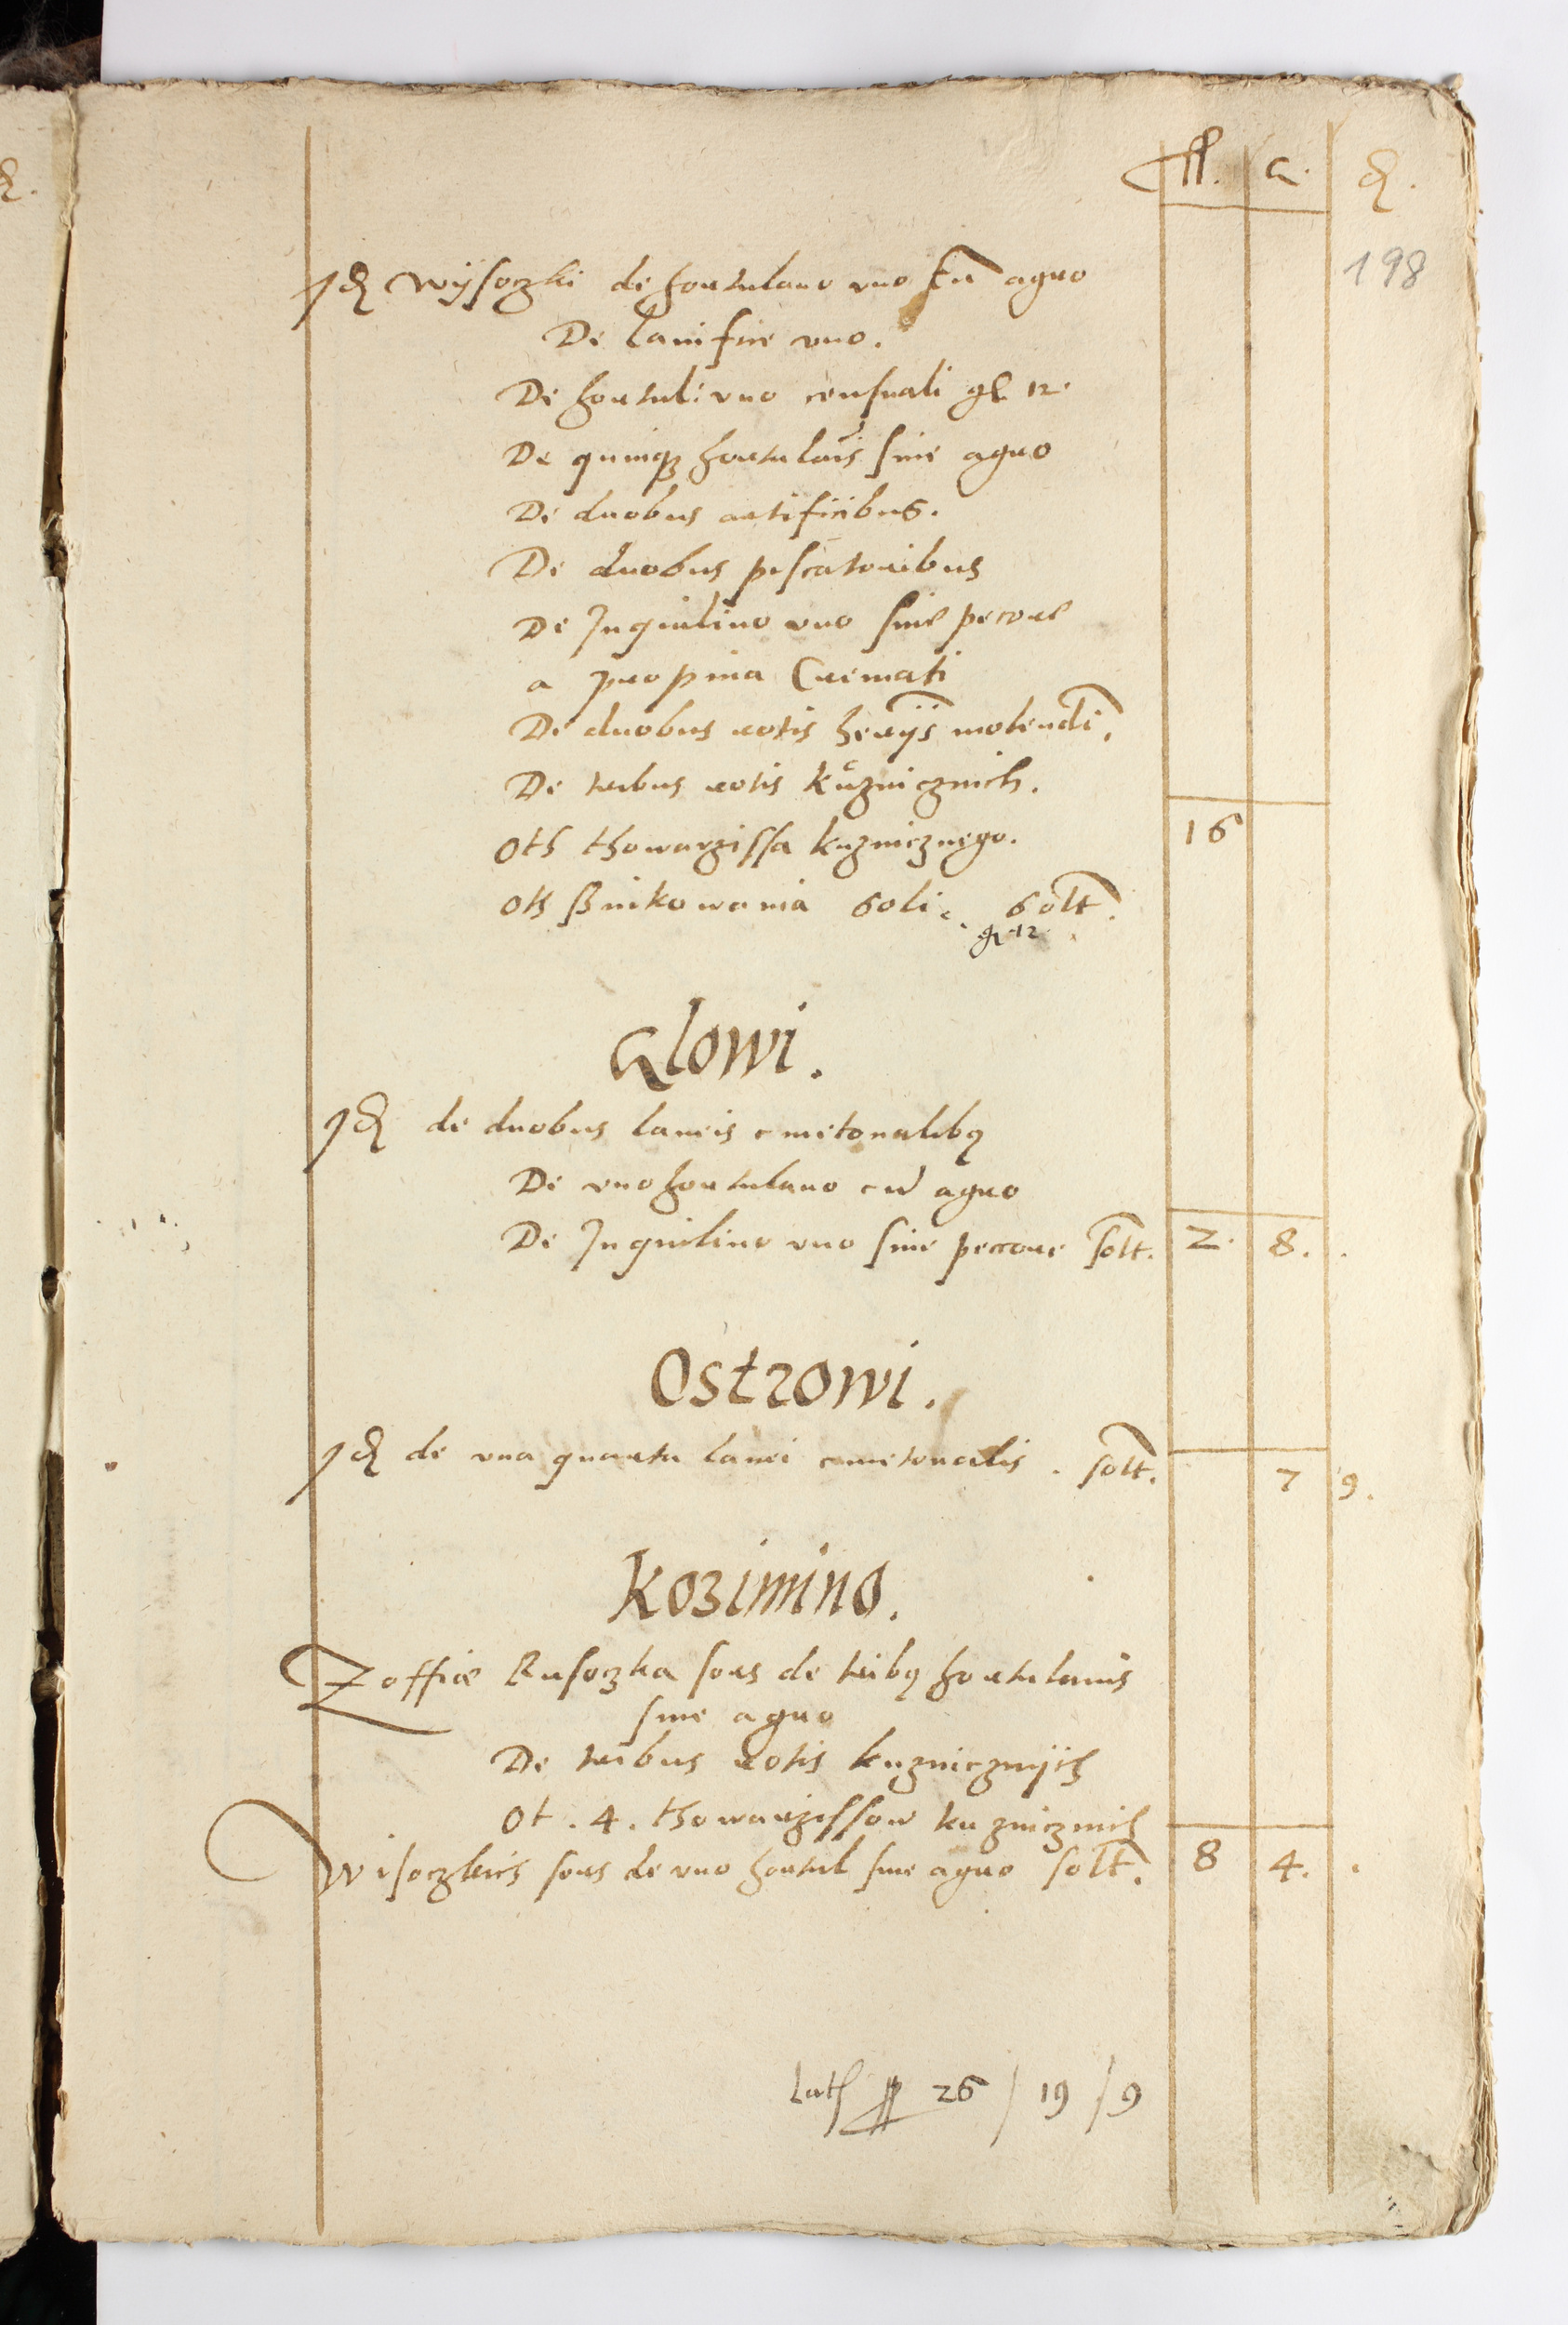 fl. G. d.
198
Id Wysoczki de hortulano uno cu agro
De lanifice uno.
De hortul: uno censuali gr 12.
De quinq hortulais sine agro
De duobus artificibus.
De duobus piscatoribus
De Inquilino uno sine pecore
a propina Cremati
De duobus rotis molendi.
De tribus rotis kuznicznich.
Oth thowarzissa kuznicznego. 16
Oth soli. solt.
gr 12
Glowi.
Id de duobus laneis cmetonalibq
De uno hortulano cu agro
De Inquilino uno sine pecore solt. 2. 8.
Ostrowi.
Id de una quarta lanei cmetonalis. solt. 7 9.
Kozimino.
Zoffiæ Rusoczka sors de tribq hortulanis
sine agro
De tribus rotis kuznicznijch
Ot. 4. thowarzissow kuznicznich
Wisoczkics sors de uno hortul sine agro solt. 8 4.
Lath fl 26 / 19 / 9